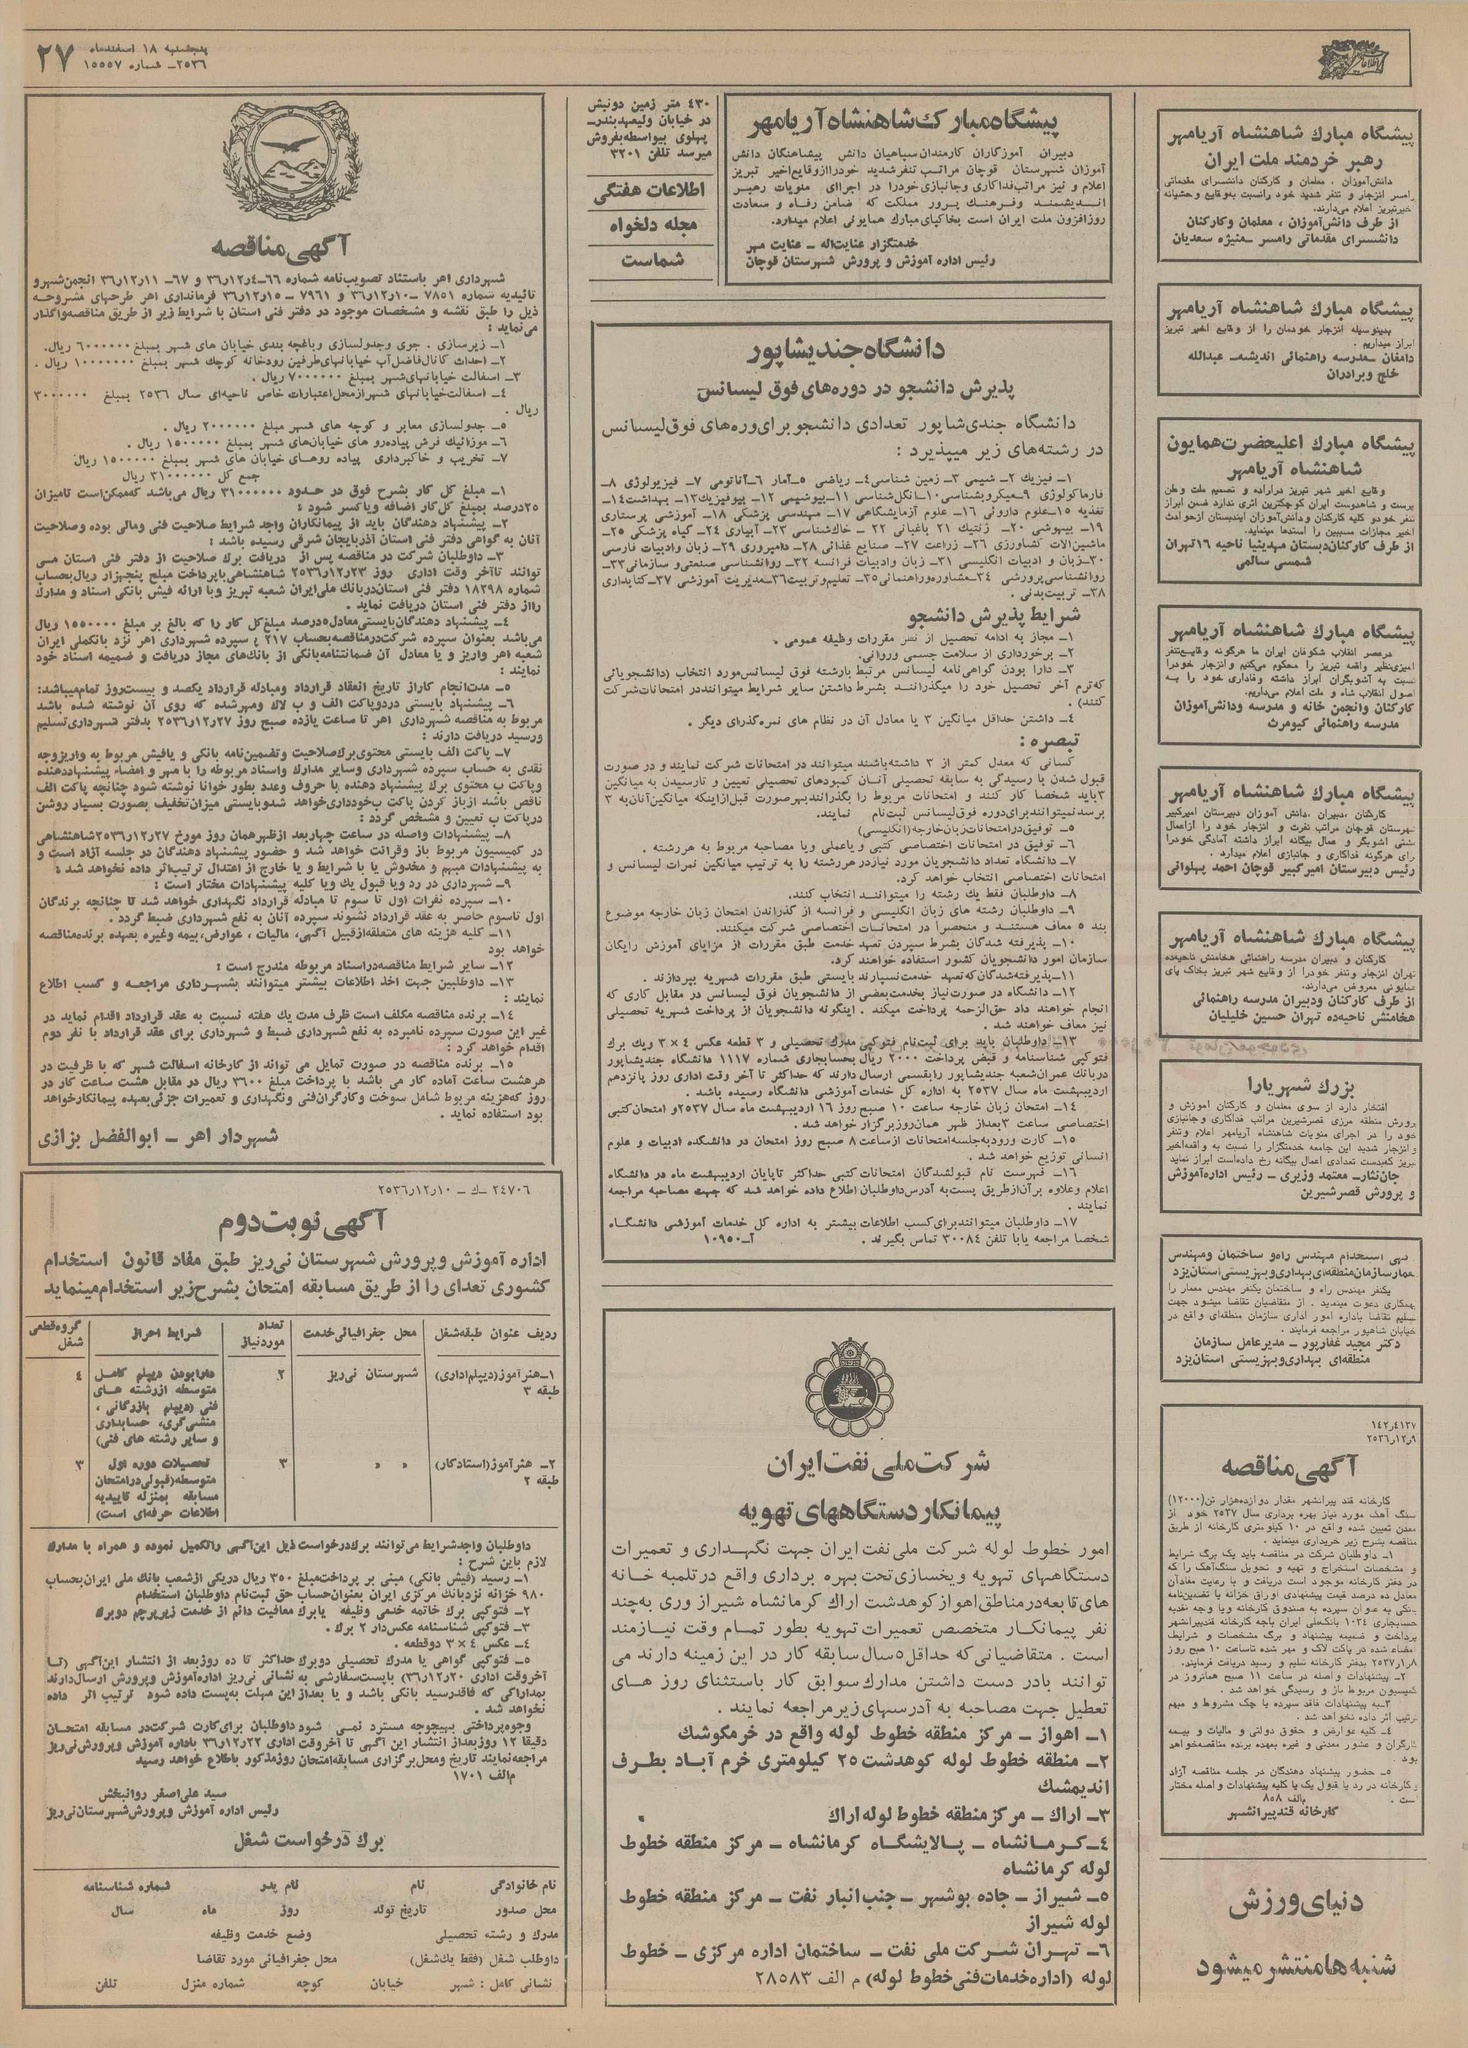 پنجشنبه ۱۸ اسفندماه
۲۵۳۶ـ شماره ۱۵۵۵۷
۲۷
اطلاعات
پیشگاه مبارك شاهنشاه آریامهر
رهبر خردمند ملت ایران
دانش‌آموزان ، معلمان و کارکنان دانشسرای مقدماتی
رامسر انزجار و تنفر شدید خود رانسبت به‌وقایع وحشیانه
اخیرتبریز اعلام می‌دارند.
از طرف دانش‌آموزان ، معلمان وکارکنان
دانشسرای مقدماتی رامسر ـ منیژه سعدیان
پیشگاه مبارك شاهنشاه آریامهر
بدینوسیله انزجار خودمان را از وقایع اخیر تبریز
ابراز میداریم .
دامغان ـ مدرسه راهنمائی اندیشه‌ـ عبدالله
خلج وبرادران
پیشگاه مبارك اعلیحضرت همایون
شاهنشاه آریامهر
از طرف کارکنان‌دبستان مهدینیا ناحیه ۱۶تهران
شمسی سالمی
پیشگاه مبارك شاهنشاه آریامهر
درعصر انقلاب شکوفان ایران ما هرگونه وقایع‌تنفر
کارکنان وانجمن خانه و مدرسه ودانش‌آموزان
مدرسه راهنمائی کیومرث
پیشگاه مبارك شاهنشاه آریامهر
کارکنان ،دبیران ،دانش آموزان دبیرستان امیرکبیر
رئیس دبیرستان امیرکبیر قوچان احمد پهلوانی
پیشگاه مبارك شاهنشاه آریامهر
کارکنان و دبیران مدرسه راهنمائی هخامنش ناحیه‌ده
تهران انزجار وتنفر خودرا از وقایع شهر تبریز بخاک پای
همایونی معروض میدارند.
از طرف کارکنان ودبیران مدرسه راهنمائی
هخامنش ناحیه‌ده تهران حسین خلیلیان
بزرك شهریارا
افتخار دارد از سوی معلمان و کارکنان آموزش و
پرورش منطقه مرزی قصرشیرین مراتب فداکاری وجانبازی
خود را در اجرای منویات شاهنشاه آریامهر اعلام وتنفر
جان‌نثار ـ معتمد وزیری ـ رئیس اداره‌آموزش
و پرورش قصرشیرین
آگهی استخدام مهندس راه‌و ساختمان ومهندس
معمارسازمان‌منطقه‌ای‌بهداری‌وبهزیستی‌استان‌یزد
یکنفر مهندس راه و ساختمان یکنفر مهندس معمار را
بهمکاری دعوت مینماید . از متقاضیان تقاضا میشود جهت
تسلیم تقاضا باداره امور اداری سازمان منطقه‌ای واقع در
خیابان شاهپور مراجعه فرمایند .
دکتر مجید غفارپور ـ مدیرعامل سازمان
منطقه‌ای بهداری‌وبهزیستی استان‌یزد
آگهی مناقصه
کارخانه قند پیرانشهر مقدار دوازده‌هزار تن(۱۲۰۰۰)
سنگ آهك مورد نیاز بهره برداری سال ۲۵۳۷ خود از
معدن تعیین شده واقع در ۱۰ کیلومتری کارخانه از طریق
مناقصه بشرح زیر خریداری مینماید .
۱ـ داوطلبان شرکت در مناقصه باید یك برگ شرایط
و مشخصات استخراج و تهیه و تحویل سنگ‌آهك را که
در دفتر کارخانه موجود است دریافت و با رعایت مفادآن
معادل ده درصد قیمت پیشنهادی اوراق خزانه یا تضمین‌نامه
بانکی به عنوان سپرده به صندوق کارخانه ویا وجه نقدبه
حسابجاری ۱۰۳۴ بانك‌ملی ایران باجه کارخانه قندپیرانشهر
پرداخت و ضمیمه پیشنهاد و برگ مشخصات و شرایط
امضاء شده در پاکت لاک و مهر شده تاساعت ۱۰ صبح روز
۲۵۳۷٫۱٫۸ بدفتر کارخانه تسلیم و رسید دریافت فرمایند.
۲ـ پیشنهادات واصله در ساعت ۱۱ صبح همانروز در
کمیسیون مربوط باز و رسیدگی خواهد شد .
۳ـ به پیشنهادات فاقد سپرده یا چک مشروط و مبهم
ترتیب اثر داده نخواهد شد .
۴ـ کلیه عوارض و حقوق دولتی و مالیات و بیمه
کارگران و عشور معدنی و غیره بعهده برنده مناقصه‌خواهد
بود .
۵ـ حضور پیشنهاد دهندگان در جلسه مناقصه آزاد
وکارخانه در رد یا قبول یک یا کلیه پیشنهادات واصله مختار
است . م‌الف ۸۵۸
کارخانه قندپیرانشهر
دنیای ورزش
شنبه‌ها منتشر میشود
پیشگاه مبارك شاهنشاه آریامهر
دبیران آموزگاران کارمندان سپاهیان دانش پیشاهنگان دانش
آموزان شهرستان قوچان مراتب تنفرشدید خودرا ازوقایع‌اخیر تبریز
اعلام و نیز مراتب‌فداکاری وجانبازی خودرا در اجرای منویات رهبر
اندیشمند وفرهنگ پرور مملکت که ضامن رفاه و سعادت
روزافزون ملت ایران است بخاکپای مبارک همایونی اعلام میدارد.
خدمتگزار عنایت‌اله ـ عنایت مهر
رئیس اداره آموزش و پرورش شهرستان قوچان
۴۳۰ متر زمین دونبش
در خیابان ولیعهدبندر ـ
پهلوی بیواسطه‌بفروش
میرسد تلفن ۳۲۰۱
اطلاعات هفتگی
مجله دلخواه
شماست
دانشگاه جندیشاپور
پذیرش دانشجو در دوره‌های فوق لیسانس
دانشگاه جندی‌شاپور تعدادی دانشجو برای‌دوره‌های فوق‌لیسانس
در رشته‌های زیر میپذیرد :
۱ـ فیزیك ۲ـ شیمی ۳ـ زمین شناسی ۴ـ ریاضی ۵ـ آمار ۶ـ آناتومی ۷ـ فیزیولوژی ۸ـ
فارماکولوژی ۹ـ میکروبشناسی ۱۰ـ انگل‌شناسی ۱۱ـ بیوشیمی ۱۲ـ بیوفیزیك ۱۳ـ بهداشت ۱۴ـ
تغذیه ۱۵ـ علوم داروئی ۱۶ـ علوم آزمایشگاهی ۱۷ـ مهندسی پزشکی ۱۸ـ آموزشی پرستاری
۱۹ـ بیهوشی ۲۰ـ ژنتیك ۲۱ باغبانی ۲۲ ـ خاك‌شناسی ۲۳ـ آبیاری ۲۴ـ گیاه پزشکی ۲۵ـ
ماشین‌آلات کشاورزی ۲۶ـ زراعت ۲۷ـ صنایع غذائی ۲۸ـ دامپروری ۲۹ـ زبان وادبیات فارسی
۳۰ـ زبان و ادبیات انگلیسی ۳۱ـ زبان وادبیات فرانسه ۳۲ـ روانشناسی صنعتی و سازمانی ۳۳ـ
روانشناسی‌پرورشی ۳۴ـ مشاوره‌وراهنمائی ۳۵ـ تعلیم‌وتربیت ۳۶ـ مدیریت آموزشی ۳۷ـ کتابداری
۳۸ـ تربیت‌بدنی .
شرایط پذیرش دانشجو
۱ـ مجاز به ادامه تحصیل از نظر مقررات وظیفه عمومی .
۲ـ برخورداری از سلامت جسمی وروانی.
۳ـ دارا بودن گواهی‌نامه لیسانس مرتبط بارشته فوق لیسانس‌مورد انتخاب (دانشجویانی
که‌ترم آخر تحصیل خود را میگذرانند بشرط داشتن سایر شرایط میتوانند در امتحانات شرکت
کنند) .
۴ـ داشتن حداقل میانگین ۳ یا معادل آن در نظام های نمره‌گذاری دیگر .
تبصره :
کسانی که معدل کمتر از ۳ داشته‌باشند میتوانند در امتحانات شرکت نمایند و در صورت
قبول شدن با رسیدگی به سابقه تحصیلی آنان کمبودهای تحصیلی تعیین و تارسیدن به میانگین
۳ باید شخصا کار کنند و امتحانات مربوط را بگذرانند بهرصورت قبل از اینکه میانگین‌آنان‌به ۳
برسد نمیتوانند برای‌دوره فوق‌لیسانس ثبت‌نام نمایند.
۵ـ توفیق در امتحانات زبان خارجه (انگلیسی)
۶ـ توفیق در امتحانات اختصاصی کتبی و یاعملی ویا مصاحبه مربوط به هررشته .
۷ـ دانشگاه تعداد دانشجویان مورد نیاز در هررشته را به ترتیب میانگین نمرات لیسانس و
امتحانات اختصاصی انتخاب خواهد کرد.
۸ـ داوطلبان فقط یك رشته را میتوانند انتخاب کنند.
۹ـ داوطلبان رشته های زبان انگلیسی و فرانسه از گذراندن امتحان زبان خارجه موضوع
بند ۵ معاف هستند و منحصرا در امتحانات اختصاصی شرکت میکنند.
۱۰ـ پذیرفته شدگان بشرط سپردن تعهد خدمت طبق مقررات از مزایای آموزش رایگان
سازمان امور دانشجویان کشور استفاده خواهند کرد.
۱۱ـ پذیرفته‌شدگان‌که‌تعهد خدمت‌نسپارند بایستی طبق مقررات شهریه بپردازند .
۱۲ـ دانشگاه در صورت‌نیاز بخدمت‌بعضی از دانشجویان فوق لیسانس در مقابل کاری که
انجام خواهند داد حق‌الزحمه پرداخت میکند . اینگونه دانشجویان از پرداخت شهریه تحصیلی
نیز معاف خواهند شد .
۱۳ـ داوطلبان باید برای ثبت‌نام فتوکپی مدرک تحصیلی و ۳ قطعه عکس ۴ × ۳ ویك برك
فتوکپی شناسنامه و قبض پرداخت ۲۰۰۰ ریال بحسابجاری شماره ۱۱۱۷ دانشگاه جندیشاپور
دربانك عمران‌شعبه جندیشاپور رابقسمی ارسال دارند که حداکثر تا آخر وقت اداری روز پانزدهم
اردیبهشت ماه سال ۲۵۳۷ به اداره کل خدمات آموزشی دانشگاه رسیده باشد .
۱۴ـ امتحان زبان خارجه ساعت ۱۰ صبح روز ۱۶ اردیبهشت ماه سال ۲۵۳۷و امتحان‌کتبی
اختصاصی ساعت ۳ بعداز ظهر همان‌روزبرگزار خواهد شد .
۱۵ـ کارت ورودبه‌جلسه‌امتحانات ازساعت ۸ صبح روز امتحان در دانشکده ادبیات و علوم
انسانی توزیع خواهد شد .
۱۶ـ فهرست نام قبولشدگان امتحانات کتبی حداکثر تاپایان اردیبهشت ماه در دانشگاه
اعلام وعلاوه برآن‌ازطریق پست‌به آدرس‌داوطلبان اطلاع داده خواهد شد که جهت مصاحبه مراجعه
نمایند .
۱۷ـ داوطلبان میتوانندبرای‌کسب اطلاعات بیشتر به اداره کل خدمات آموزشی دانشگاه
شخصا مراجعه یابا تلفن ۳۰۰۸۴ تماس بگیرند . آ ـ ۱۰۹۵۰
شرکت ملی نفت ایران
پیمانکار دستگاههای تهویه
امور خطوط لوله شرکت ملی نفت ایران جهت نگهداری و تعمیرات
دستگاههای تهویه ویخسازی‌تحت بهره برداری واقع درتلمبه خانه
های‌تابعه‌درمناطق اهواز کوهدشت اراك کرمانشاه شیراز وری به‌چند
نفر پیمانکار متخصص تعمیرات تهویه بطور تمام وقت نیازمند
است . متقاضیانی که حداقل ۵ سال سابقه کار در این زمینه دارند می
توانند بادر دست داشتن مدارك سوابق کار باستثنای روز های
تعطیل جهت مصاحبه به آدرسهای زیر مراجعه نمایند .
۱ـ اهواز ـ مرکز منطقه خطوط لوله واقع در خرمکوشك
۲ـ منطقه خطوط لوله کوهدشت ۲۵ کیلومتری خرم آباد بطرف
اندیمشك
۳ـ اراك ـ مرکز منطقه خطوط لوله اراك
۴ـ کرمانشاه ـ پالایشگاه کرمانشاه ـ مرکز منطقه خطوط
لوله کرمانشاه
۵ـ شیراز ـ جاده بوشهر ـ جنب انبار نفت ـ مرکز منطقه خطوط
لوله شیراز
۶ـ تهران شرکت ملی نفت ـ ساختمان اداره مرکزی ـ خطوط
لوله (اداره خدمات فنی خطوط لوله) م الف ۲۸۵۸۳
آگهی مناقصه
شهرداری اهر باستناد تصویب‌نامه شماره ۶۶ـ۳۶٫۱۲٫۴ و ۶۷ـ ۳۶٫۱۲٫۱۱ انجمن‌شهرو
تائیدیه شماره ۷۸۵۱ ـ ۳۶٫۱۲٫۱۰ و ۷۹۶۱ ـ ۳۶٫۱۲٫۱۵ فرمانداری اهر طرحهای مشروحه
ذیل را طبق نقشه و مشخصات موجود در دفتر فنی استان با شرایط زیر از طریق مناقصه‌واگذار
می‌نماید :
۱ـ زیرسازی . جوی وجدولسازی وباغچه بندی خیابان های شهر بمبلغ ۶۰۰۰۰۰۰ ریال.
۲ـ احداث کانال‌فاضل‌آب خیابانهای‌طرفین رودخانه کوچك شهر بمبلغ ۱۰۰۰۰۰۰۰ ریال .
۳ـ اسفالت خیابانهای‌شهر بمبلغ ۷۰۰۰۰۰۰ ریال .
۴ـ اسفالت‌خیابانهای شهرازمحل‌اعتبارات خاص ناحیه‌ای سال ۲۵۳۶ بمبلغ ۳۰۰۰۰۰۰
ریال .
۵ـ جدولسازی معابر و کوچه های شهر مبلغ ۲۰۰۰۰۰۰ ریال .
۶ـ موزائیك فرش پیاده‌رو های خیابان‌های شهر بمبلغ ۱۵۰۰۰۰۰ ریال .
۷ـ تخریب و خاکبرداری پیاده روهای خیابان های شهر بمبلغ ۱۵۰۰۰۰۰ ریال
جمع کل ۳۱۰۰۰۰۰۰ ریال
۱ـ مبلغ کل کار بشرح فوق در حدود ۳۱۰۰۰۰۰۰ ریال می‌باشد که‌ممکن‌است تامیزان
۲۵درصد بمبلغ کل‌کار اضافه ویاکسر شود :
۲ـ پیشنهاد دهندگان باید از پیمانکاران واجد شرایط صلاحیت فنی ومالی بوده وصلاحیت
آنان به گواهی دفتر فنی استان آذربایجان شرقی رسیده باشد :
۳ـ داوطلبان شرکت در مناقصه پس از دریافت برك صلاحیت از دفتر فنی استان می
توانند تاآخر وقت اداری روز ۲۵۳۶٫۱۲٫۲۳ شاهنشاهی‌باپرداخت مبلغ پنجهزار ریال‌بحساب
شماره ۱۸۲۹۸ دفتر فنی استان‌دربانك ملی‌ایران شعبه تبریز وبا ارائه فیش بانکی اسناد و مدارک
رااز دفتر فنی استان دریافت نماید .
۴ـ پیشنهاد دهندگان‌بایستی‌معادل۵درصد مبلغ‌کل کار را که بالغ بر مبلغ ۱۵۵۰۰۰۰ ریال
می‌باشد بعنوان سپرده شرکت‌درمناقصه‌بحساب ۲۱۷ پ سپرده شهرداری اهر نزد بانکملی ایران
شعبه اهر واریز و یا معادل آن ضمانتنامه‌بانکی از بانك‌های مجاز دریافت و ضمیمه اسناد خود
نمایند :
۵ـ مدت‌انجام کاراز تاریخ انعقاد قرارداد ومبادله قرارداد یکصد و بیست‌روز تمام‌میباشد:
۶ـ پیشنهاد بایستی دردوپاکت الف و ب لاك ومهرشده که روی آن نوشته شده باشد
مربوط به مناقصه شهرداری اهر تا ساعت یازده صبح روز ۲۵۳۶٫۱۲٫۲۷ بدفتر شهرداری‌تسلیم
ورسید دریافت دارند :
۷ـ پاکت الف بایستی محتوی‌برك‌صلاحیت وتضمین‌نامه بانکی و یافیش مربوط به واریزوجه
نقدی به حساب سپرده شهرداری وسایر مدارك واسناد مربوطه را با مهر و امضاء پیشنهاددهنده
وپاکت ب محتوی برك پیشنهاد دهنده با حروف وعدد بطور خوانا نوشته شود چنانچه پاکت الف
ناقص باشد ازباز کردن پاکت ب‌خودداری‌خواهد شدوبایستی میزان‌تخفیف بصورت بسیار روشن
درپاکت ب تعیین و مشخص گردد :
۸ـ پیشنهادات واصله در ساعت چهاربعد ازظهرهمان روز مورخ ۲۵۳۶٫۱۲٫۲۷شاهنشاهی
در کمیسیون مربوط باز وقرائت خواهد شد و حضور پیشنهاد دهندگان در جلسه آزاد است و
به پیشنهادات مبهم و مخدوش یا با شرایط و یا خارج از اعتدال ترتیب‌اثر داده نخواهد شد :
۹ـ شهرداری در رد ویا قبول یك ویا کلیه پیشنهادات مختار است :
۱۰ـ سپرده نفرات اول تا سوم تا مبادله قرارداد نگهداری خواهد شد تا چنانچه برندگان
اول تاسوم حاضر به عقد قرارداد نشوند سپرده آنان به نفع شهرداری ضبط گردد .
۱۱ـ کلیه هزینه های متعلقه‌ازقبیل آگهی، مالیات ، عوارض،بیمه وغیره بعهده برنده‌مناقصه
خواهد بود
۱۲ـ سایر شرایط مناقصه‌دراسناد مربوطه مندرج است :
۱۳ـ داوطلبین جهت اخذ اطلاعات بیشتر میتوانند بشهرداری مراجعه و کسب اطلاع
نمایند :
۱۴ـ برنده مناقصه مکلف است ظرف مدت یك هفته نسبت به عقد قرارداد اقدام نماید در
غیر این صورت سپرده نامبرده به نفع شهرداری ضبط و شهرداری برای عقد قرارداد با نفر دوم
اقدام خواهد کرد :
۱۵ـ برنده مناقصه در صورت تمایل می تواند از کارخانه اسفالت شهر که با ظرفیت در
هرهشت ساعت آماده کار می باشد با پرداخت مبلغ ۳۶۰۰ ریال در مقابل هشت ساعت کار در
روز که‌هزینه مربوط شامل سوخت وکارگران‌فنی ونگهداری و تعمیرات جزئی‌بعهده پیمانکارخواهد
بود استفاده نماید .
شهردار اهر ـ ابوالفضل بزازی
۲۴۷۰۶ ـ ك ـ ۲۵۳۶٫۱۲٫۱۰
آگهی نوبت دوم
اداره آموزش وپرورش شهرستان نی‌ریز طبق مفاد قانون استخدام
کشوری تعدادی را از طریق مسابقه امتحان بشرح‌زیر استخدام‌مینماید
ردیف عنوان طبقه‌شغل محل جغرافیائی‌خدمت تعداد موردنیاز شرایط احراز گروه‌قطعی شغل
۱ـ هنرآموز(دیپلم‌اداری) شهرستان نی‌ریز ۲ دارابودن دیپلم کامل ۴
طبقه ۳ متوسطه ازرشته های
فنی (دیپلم بازرگانی ،
منشی‌گری، حسابداری
و سایر رشته های فنی)
۲ـ هنرآموز(استادکار) » » ۳ تحصیلات دوره اول ۳
طبقه ۲ متوسطه(قبولی‌درامتحان
مسابقه بمنزله تاییدیه
اطلاعات حرفه‌ای است)
داوطلبان واجدشرایط می‌توانند برك‌درخواست ذیل این‌آگهی راتکمیل نموده و همراه با مدارك
لازم باین شرح :
۱ـ رسید (فیش بانکی) مبنی بر پرداخت‌مبلغ ۳۵۰ ریال دریکی ازشعب بانك ملی ایران‌بحساب
۹۸۰ خزانه نزدبانك مرکزی ایران بعنوان‌حساب حق ثبت‌نام داوطلبان استخدام
۲ـ فتوکپی برك خاتمه خدمی وظیفه یابرك معافیت دائم از خدمت زیرپرچم دوبرك
۳ـ فتوکپی شناسنامه عکس‌دار ۲ برك.
۴ـ عکس ۴ × ۳ دوقطعه .
۵ـ فتوکپی گواهی یا مدرك تحصیلی دوبرك حداکثر تا ده روزبعد از انتشار این‌آگهی (تا
آخروقت اداری ۳۶٫۱۲٫۲۰) باپست‌سفارشی به نشانی نی‌ریز اداره‌آموزش وپرورش ارسال‌دارند
بمدارکی که فاقدرسید بانکی باشد و یا بعداز این مهلت به‌پست داده شود ترتیب اثر داده
نخواهد شد .
وجوه‌پرداختی بهیچوجه مسترد نمی شود داوطلبان برای‌کارت شرکت‌در مسابقه امتحان
دقیقا ۱۲ روزبعداز انتشار این آگهی تا آخروقت اداری ۳۶٫۱۲٫۲۲ باداره آموزش وپرورش‌نی‌ریز
مراجعه‌نمایند تاریخ ومحل‌برگزاری مسابقه‌امتحان روزمذکور باطلاع خواهد رسید
م‌الف ۱۷۰۱
سید علی‌اصغر روانبخش
رئیس اداره آموزش وپرورش‌شهرستان‌نی‌ریز
برك درخواست شغل
نام خانوادگی نام نام پدر شماره شناسنامه
محل صدور تاریخ تولد روز ماه سال
مدرك و رشته تحصیلی وضع خدمت وظیفه
داوطلب شغل (فقط یك‌شغل) محل جغرافیائی مورد تقاضا
نشانی کامل : شهر خیابان کوچه شماره منزل تلفن